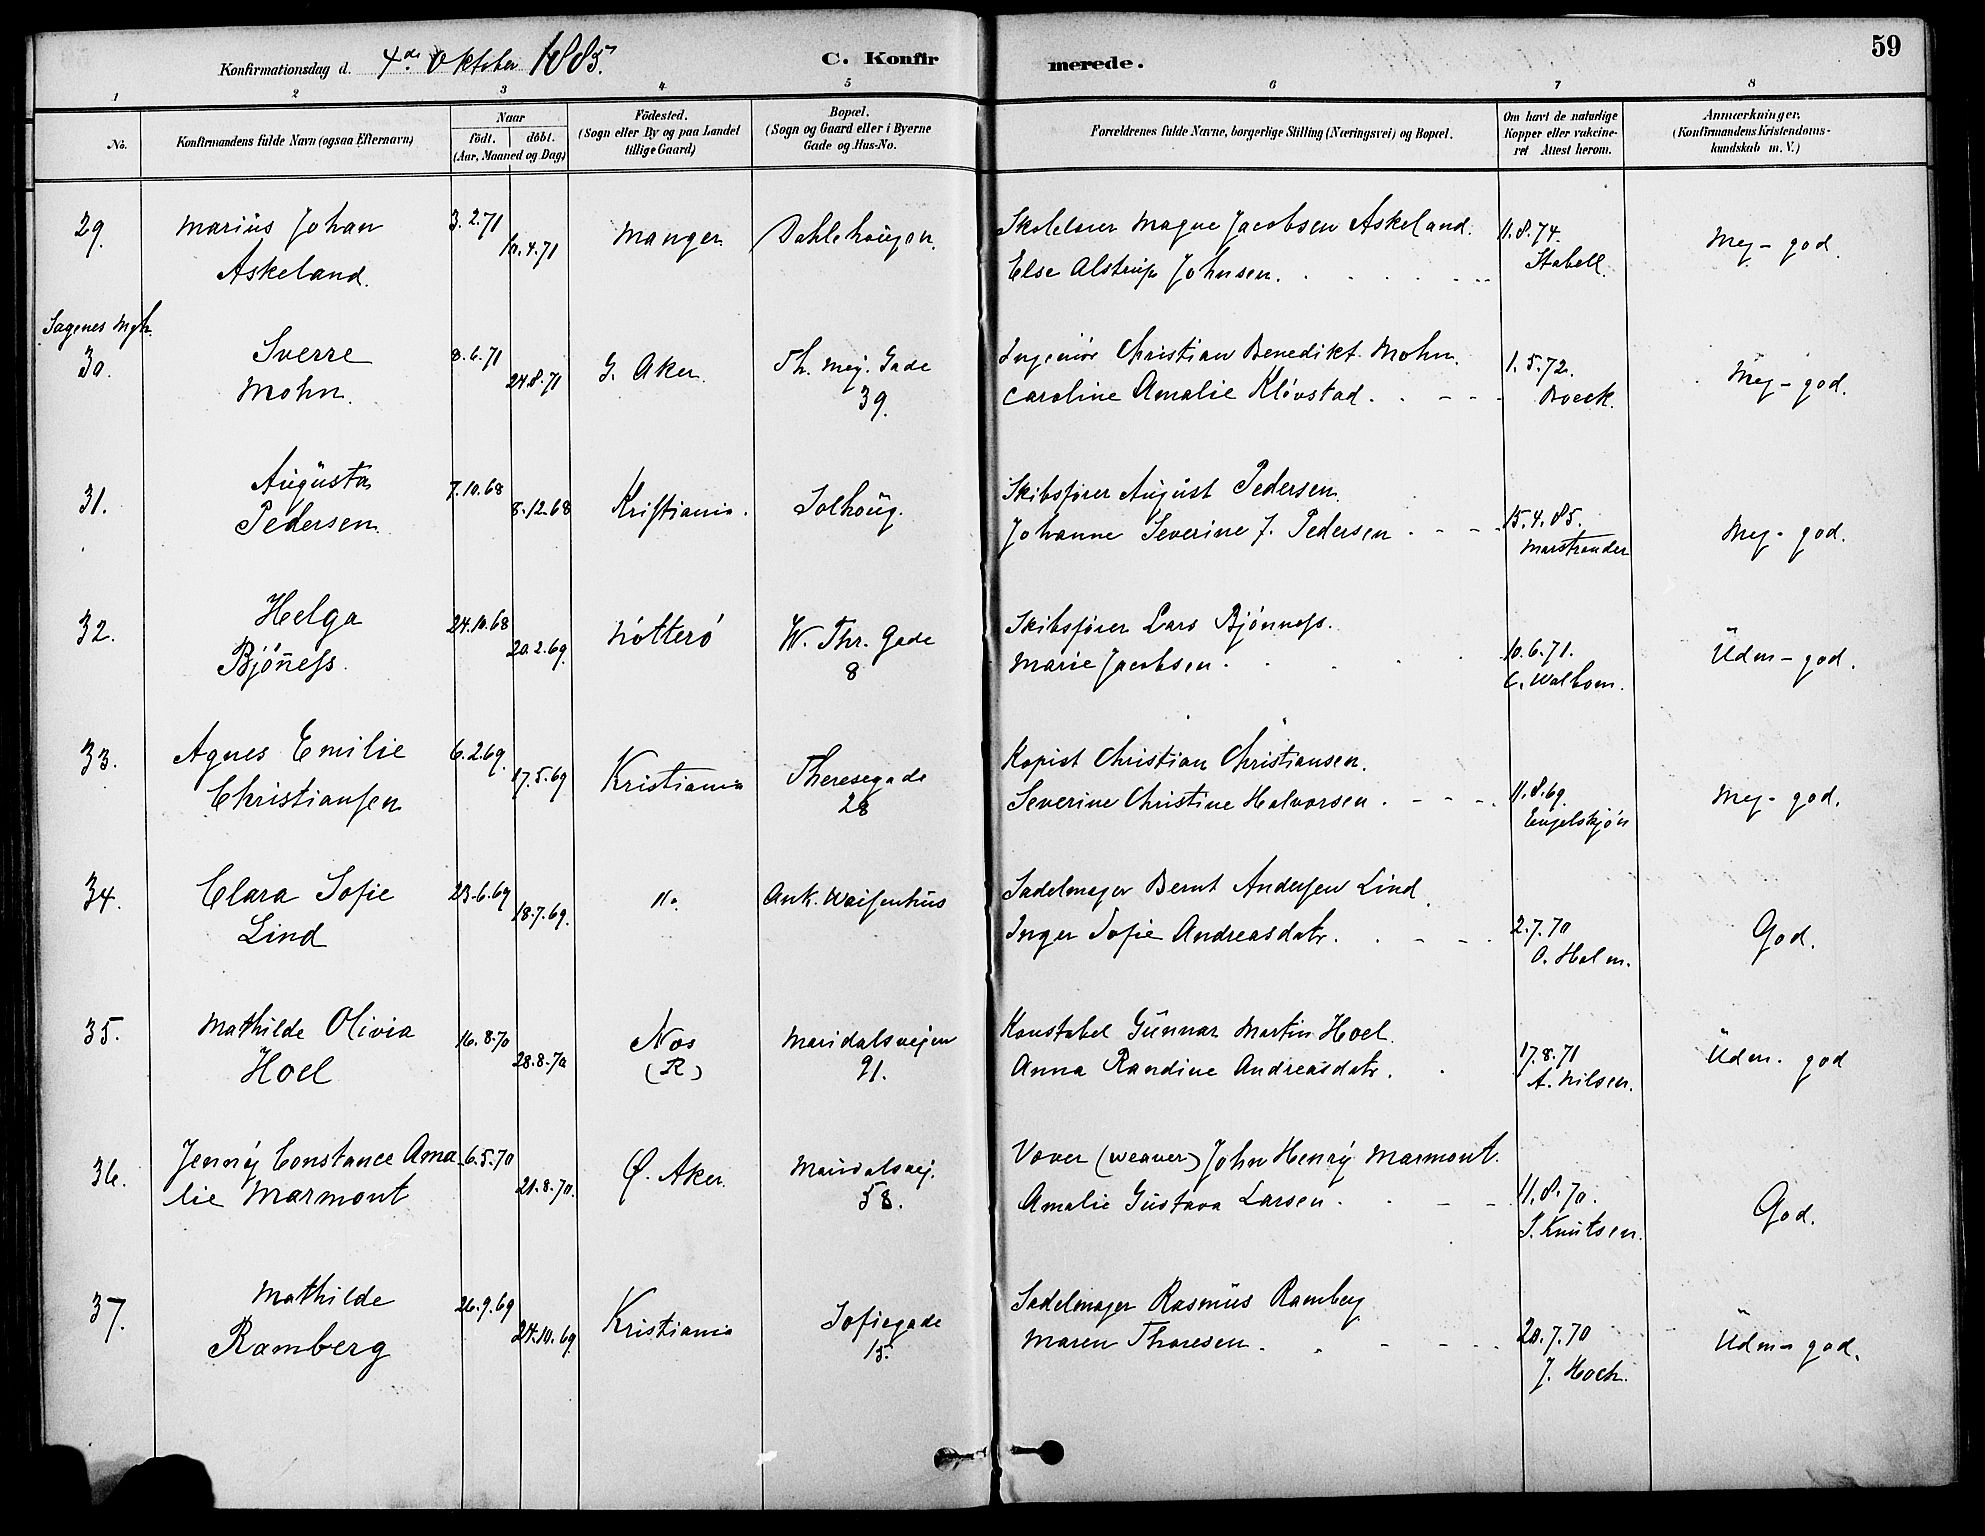 Konfirmationsdag d. 4de Oktober 1885. C. Konfirmerede. 59
1 2 3 4. 5 6 7 8
No. Konfirmandens fulde Navn (ogsaa Efternavn) Naar födt. döbt. (Aar, Maaned og Dag) Födested. (Sogn eller By og paa Landet tillige Gaard) Bopæl. (Sogn og Gaard eller i Byerne Gade og Hus-No. Forældrenes fulde Navne, borgerlige Stilling (Næringsvei) og Bopæl. Om havt de naturlige Kopper eller vakcineret Attest herom. Anmærkninger, (Konfirmandens Kristendomskundskab m. V.)
29. Marius Johan 3.2.71 Manger Dahlehougen. Skolelærer Magne Jacobsen Askeland. 11.8.74. Meg-god.
Askeland. 10.4.71 Else Alstrup Johnsen. Stabell.
Sagenes Mgh.
30. Sverre 8.6.71 G. Aker. Th. Mej. Gade Ingeniør Christian Benedikt Mohn. 1.5.72. Meg-god.
Mohn. 24.8.71 39. Caroline Amalie Kløvstad. Boeck.
31. Augusta 7.10.68 Kristiania. Solhoug. Skibsfører August Pedersen. 15.4.85. Meg-god.
Pedersen 8.12.68 Johanne Severine J. Pedersen Marstrander
32. Helga 24.10.68 Nötterö W. Thr. Gade Skibsfører Lars Bjønness. 10.6.71. Udm-god.
Bjöness. 20.2.69. 8 Marie Jacobsen. C. Walbom.
33. Agnes Emilie 6.2.69. Kristiania Theresegade Kopist Christian Christiansen. 11.8.69. Meg-god.
Christiansen 17.5.69 28 Severine Christine Halvorsen. Engelskjøn
34. Clara Sofie 23.6.69 ". Ank. Waisenhus Sadelmager Bernt Andersen Lind. 2.7.70 God.
Lind 18.7.69. Inger Sofie Andreasdatr. O. Holm.
35. Mathilde Olivia 16.8.70 Næs Maridalsvejen Konstabel Gunnar Martin Hoel. 17.8.71 Udm. god
Hoel 28.8.70 (R) 91. Anna Randine Andreasdatr. A. Nilsen.
36. Jenny Constance Ama 6.5.70 Ø. Aker. Maridalsvej. Væver (weaver) John Henry Marmont. 11.8.70. God.
lie Marmont 21.8.70. 58. Amalie Gustava Larsen. S. Knutsen.
37. Mathilde 26.9.69 Kristiania Sofiegade Sadelmager Rasmus Ramberg 20.7.70 Udm-god.
Ramberg 24.10.69. 15. Maren Thoresen. J. Hoch.